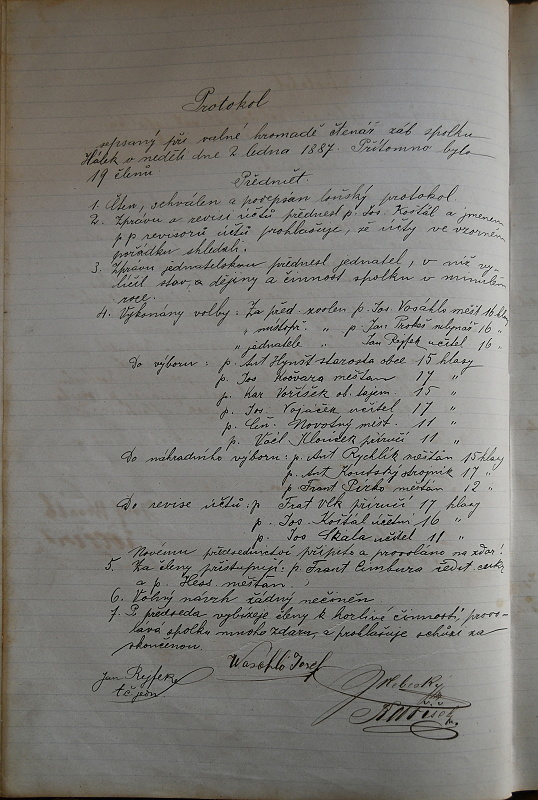 Protokol
sepsaný při valné hromadě čtenář. záb. spolku
Hálek v neděli dne 2 ledna 1887. Přítomno bylo
19 členů.
Předmět.
1. Čten, schválen a podepsán loňský protokol.
2. Zprávu o revisi účtů přednesl p. Jos. Koštál a jmenem
pp revisorů účtů prohlašuje, že účty ve vzorném
pořádku shledali.
3. Zprávu jednatelskou přednesl jednatel, v níž vy-
líčil stav, a dějiny a činnost spolku v minulém
roce.
4. Vykonány volby: Za před. zvolen p. Jos. Vosáhlo měšt 16 hlasy
" místopř. " p. Jan Prokeš mlynář 16 "
" jednatele " Jan Ryfek učitel 16 "
Do výboru: p. Ant Hynšt starosta obce 15 hlasy
p. Jos Kovára měštan 17 "
p. Kar Voříšek ob. tajem. 15 "
p. Jos. Vojáček učitel 17 "
p. Novotný měšt. 11 "
p. Václ Klouček příručí 11 "
Do náhradního výboru: p. Ant Rychlík měštan 15 hlasy
p. Ant. Koutský strojník 17 "
p. Frant Pirko měštan 12 "
Do revise účtů: p Frat Vlk příručí 17 hlasy
p. Jos. Koštál účetní 16 "
p. Jos Skála učitel 11 "
Novému předsednictví připito a provoláno na zdar!
5. Za členy přistupují: p. Frant Cimbura ředit. cukr
a p. Hess. měštan.
6. Volný návrh žádný nečiněn
7. P předseda vybízeje členy k horlivé činnosti, provo-
lává spolku mnoho zdaru, a prohlašuje schůzi za
skončenou.
Jan Ryfek
t č jedn
Wosáhlo Josef